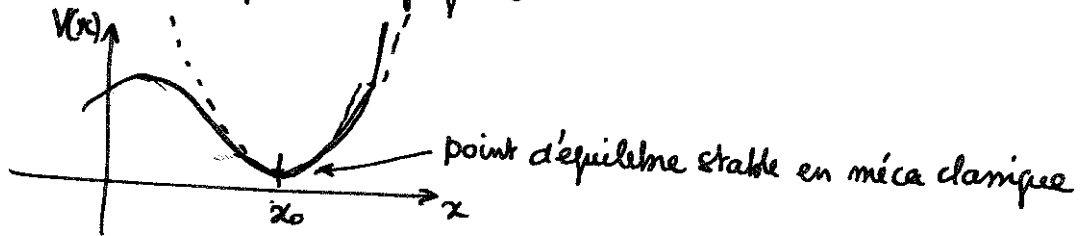 V(x)
point d'équilibre stable en méca classique
x₀
x